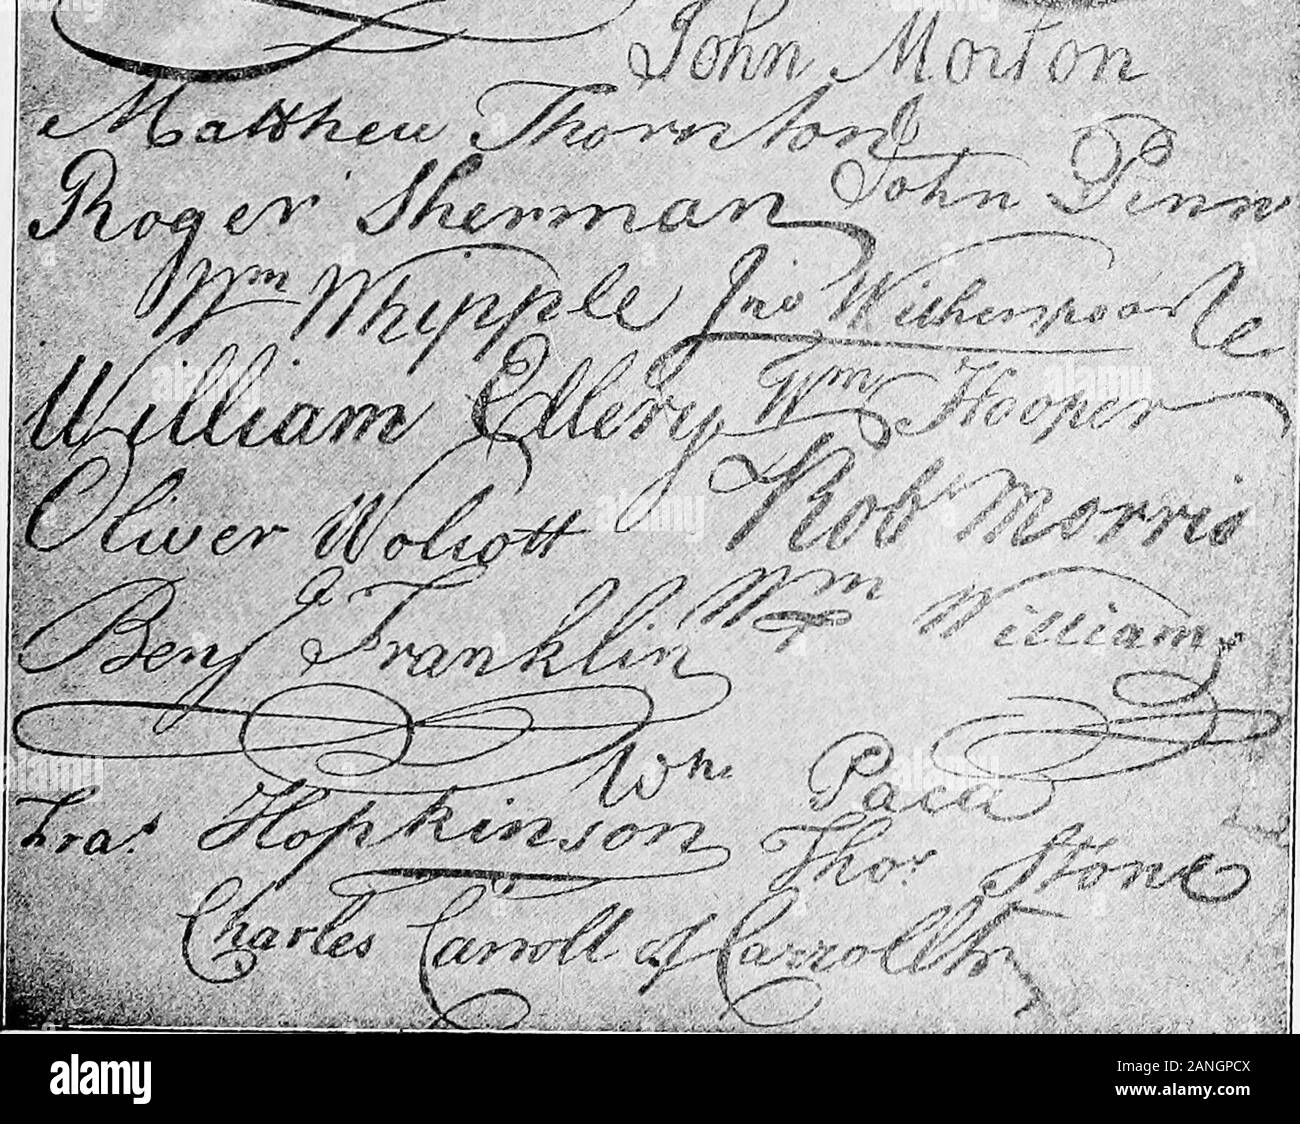 John Morton
Matthew Thornton
Roger Sherman John Penn
Wm Whipple Jno Witherspoon
William Ellery Wm Hooper
Oliver Wolcott Robt Morris
Benj Franklin Wm Williams
Wm Paca
Fras Hopkinson Thos Stone
Charles Carroll of Carrollton
alamy
Image ID: 2ANGPCX
www.alamy.com